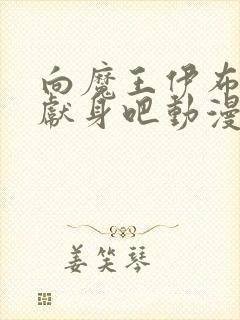 向魔王伊布
献身吧動漫
姜笑琴